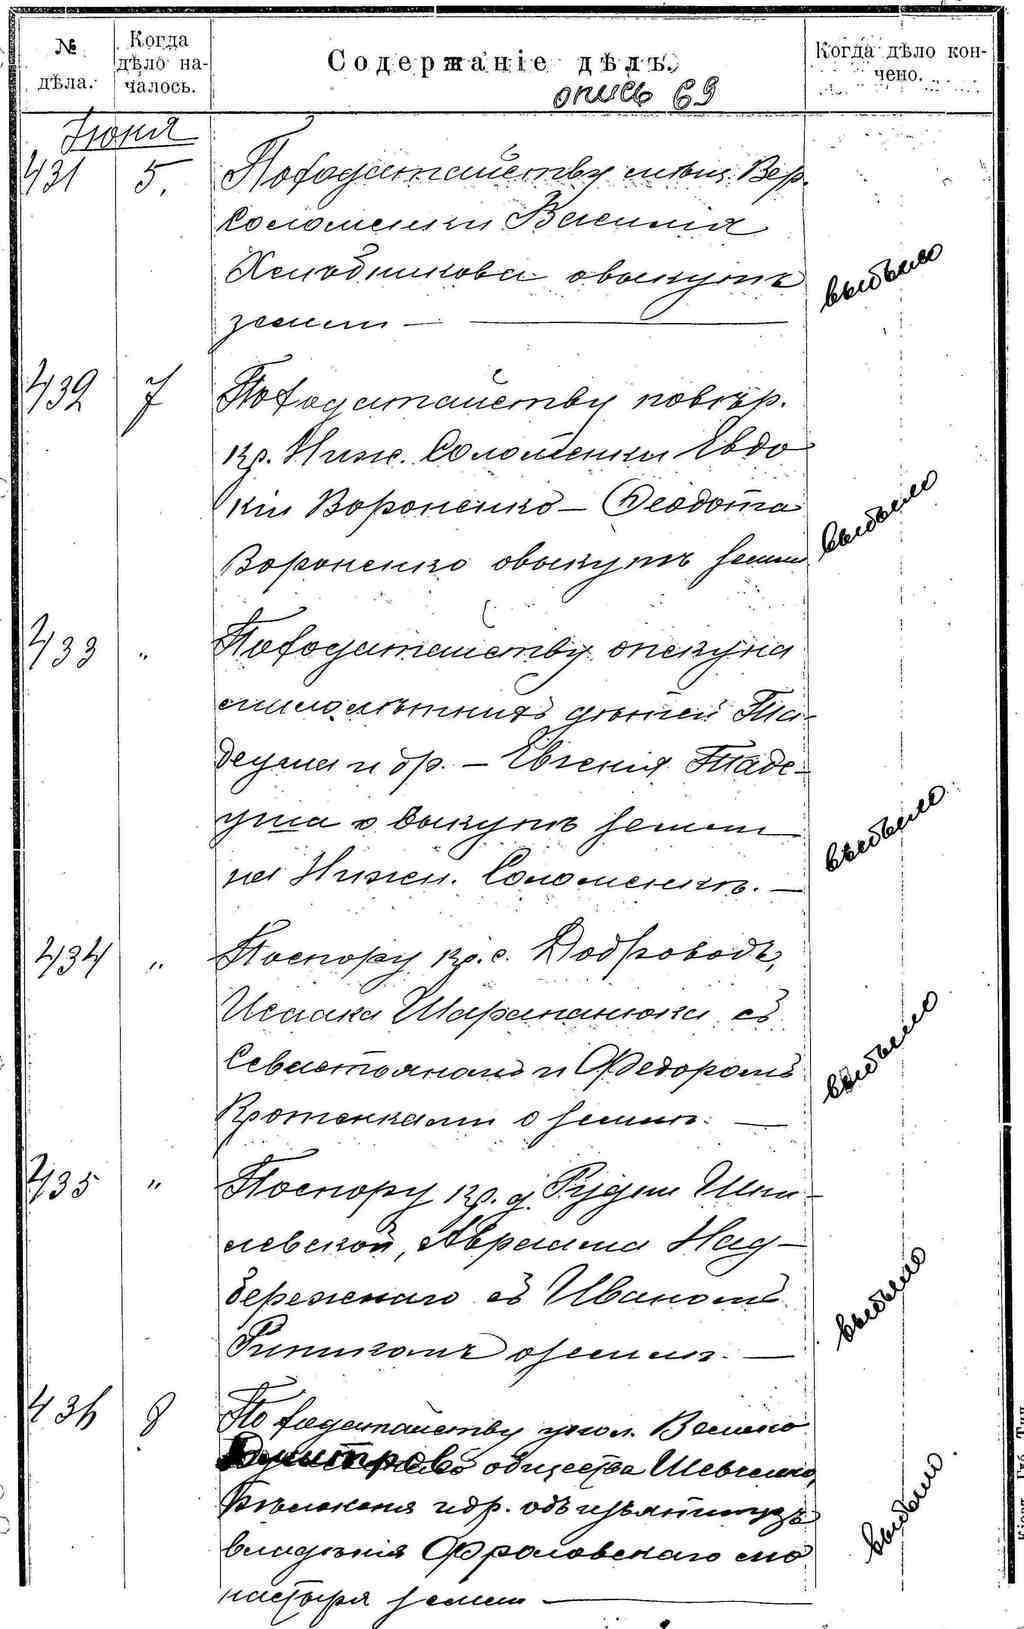 № дѣла.
Когда дѣло началось.
Содержаніе дѣлъ.
Когда дѣло кончено.
опись 69
Іюня
431 5.
По ходатайству мѣщ. Вер.
Соломенки Василія
Холодникова о выкупѣ
земли —
выбыло
432 7
По ходатайству повѣр.
кр. Ниж. Соломенки Евдо
кіи Вороненко — Феодота
Вороненко о выкупѣ земли
выбыло
433 "
По ходатайству опекуна
малолѣтнихъ дѣтей Та-
деуша и др. — Евгенія Таде-
уша о выкупѣ земли
на Нижн. Соломенкѣ. —
выбыло
434 "
По спору кр. с. Добровод,
Исаака Шарапанюка съ
Севастьяномъ и Федоромъ
Кротенками о землѣ. —
выбыло
435 "
По спору кр. д. Рудни Шпи-
левской, Авраама Над-
бережнаго съ Иваномъ
о землѣ. —
выбыло
436 8
По ходатайству упол. Велико
Дмитров общества Шевченко,
и др. объ изъятіи изъ
владѣнія Фроловскаго мо
настыря земли —
выбыло